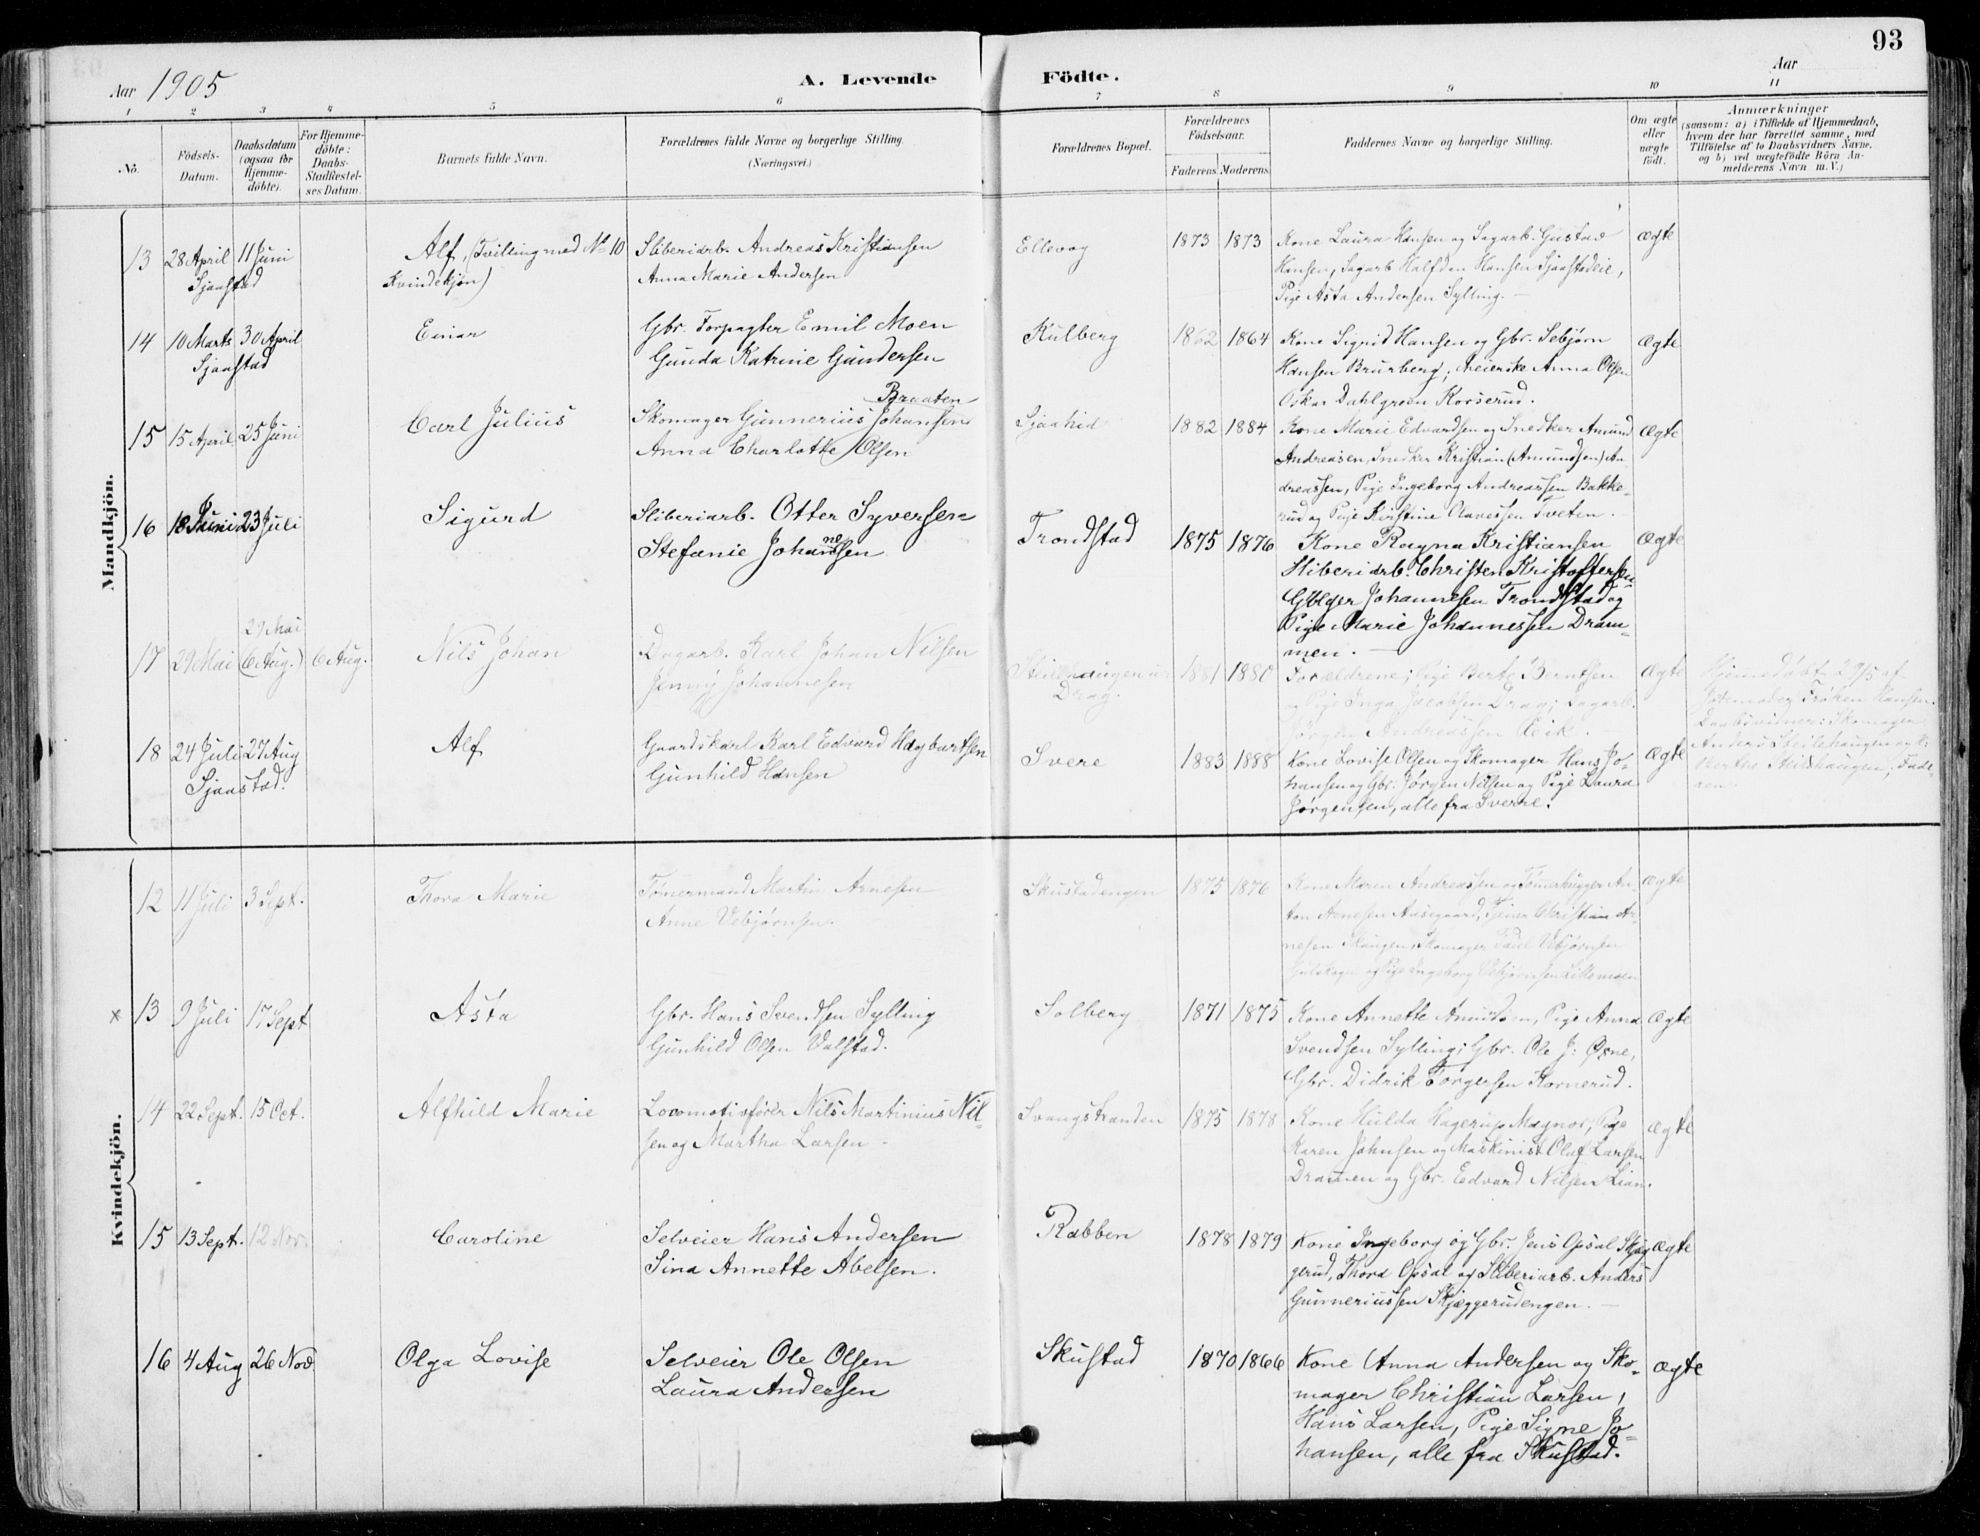 93
Aar 1905 A. Levende Födte. Aar
1 2 3 4 5 6 7 8 9 10 11
No.
Födsels-
Datum.
Daabsdatum
(ogsaa for
Hjemme-
döbte).
For Hjemme-
döbte:
Daabs-
Stadfæstel-
ses Datum.
Barnets fulde Navn.
Forældrenes fulde Navne og borgerlige Stilling
(Næringsvei.)
Forældrenes Bopæl.
Forældrenes
Födselsaar.
Faderens. Moderens.
Faddernes Navne og borgerlige Stilling.
Om ægte
eller
uægte
födt.
Anmærkninger
(saasom: a) i Tilfælde af Hjemmedaab,
hvem der har forrettet samme, med
Tilföielse af to Daabsvidners Navne,
og b) ved uægtefödte Börn An-
melderens Navn m. V.)
Mandkjön.
13 28 April 11 Juni
Sjaastad
Alf (Tvilling med No 10
Kvindekjøn)
Sliberiarb. Andreas Kristiansen
Anna Marie Andersen
Ellevog
1873 1873
Kone Laura Hansen og Sagarb. Gustav
Hansen, Sagarb. Halfdan Hansen Sjaastadeie,
Pige Asta Andersen Sylling. —
Ægte
14 10 Marts 30 April
Sjaastad
Einar
Gbr. Forpagter Emil Moen
Gunda Katrine Gundersen
Kulberg
1862 1864
Kone Sigrid Hansen og Gbr. Sebjørn
Hansen Brurberg, Anna Olsen
Oskar Dahlgreen Korserud.
Ægte
15 15 April 25 Juni
Carl Julius
Braaten
Skomager Gunnerius Johansen
Anna Charlotte Olsen
1882 1884
Kone Marie Edvardsen og Snedker Amund
Andreasen, Snedker Kristian (Amundsen) An-
dreassen, Pige Ingeborg Andreassen Bakke-
rud og Pige Kirstine Olavessen Tveten. —
Ægte
16 18 Juni 23 Juli
Sigurd
Sliberiarb. Otter Syversen
Stefanie Johannesen
Trondstad
1875 1876
Kone Ragna Kristiansen
Sliberiarb. Christen Kristoffersen
Johannesen Trondstad og
Pige Marie Johannessen Dram-
men. —
Ægte
17 29 Mai 29 Mai
(6 Aug.) 6 Aug.
Nils Johan
Dagarb. Karl Johan Nilsen
Jenny Johannesen
Steilehaugen u.
Drag.
1881 1880
Forældrene; Pige Berte Berntsen
og Pige Inga Jacobsen Drag; Sagarb.
Jørgen Andreassen Eik.
Ægte
Hjemmedøbt 29/5 af
Jordemoder Frøken Hansen.
Daabsvidner: Skomager
Anders Steilehaugen og
Berthe Steilehaugen, Fade-
ren.
18 24 Juli 27 Aug
Sjaastad.
Alf
Gaardskarl Karl Edvard Hagbartsen
Gunhild Hansen
Svere
1883 1888
Kone Lovise Olsen og Skomager Hans Jo-
hansen og Gbr. Jørgen Nilsen og Pige Laura
Jørgensen, alle fra Sverre.
Ægte
Kvindekjön.
12 11 Juli 3 Sept.
Thora Marie
Tømermand Martin Arnesen
Anne Vebjørnsen.
Skustadengen
1875 1876
Kone Maren Andreassen og Tømerhugger An-
ton Arnesen Aasegaard, Tjener Christian Ar-
nesen Haugen, Skomager Paul Vebjørnsen
Gulskogen og Pige Ingeborg Vebjørnsen Lillemoen
Ægte
x 13 9 Juli 17 Sept
Asta
Gbr. Hans Svendsen Sylling
Gunhild Olsen Valstad.
Solberg
1871 1875
Kone Annette Amundsen, Pige Anna
Svendsen Sylling; Gbr. Ole J. Øsne,
Gbr. Didrik Torgersen Kornerud.
Ægte
14 22 Sept. 15 Oct.
Alfhild Marie
Locomotivfører Nils Martinius Nil-
sen og Martha Larsen -
Svangstranden
1875 1878
Kone Hulda Hagerup Magnor, Pige
Karen Johnsen og Maskinist Olaf Larsen
Dramen og Gbr. Edvard Nilsen Lian.
Ægte
15 13 Sept. 12 Nov.
Caroline
Selveier Hans Andersen
Sina Annette Abelsen.
Rabben
1878 1879
Kone Ingeborg og Gbr. Jens Opsal Skjæg-
gerud, Thora Opsal og Sliberiarb. Anders
Gunneriussen Skjæggerudengen. —
Ægte
16 4 Aug 26 Nov
Olga Lovise
Selveier Ole Olsen
Laura Andersen
Skustad
1870 1866
Kone Anna Andersen og Sko-
mager Christian Larsen,
Hans Larsen, Pige Signe Jo-
hansen, alle fra Skustad.
Ægte